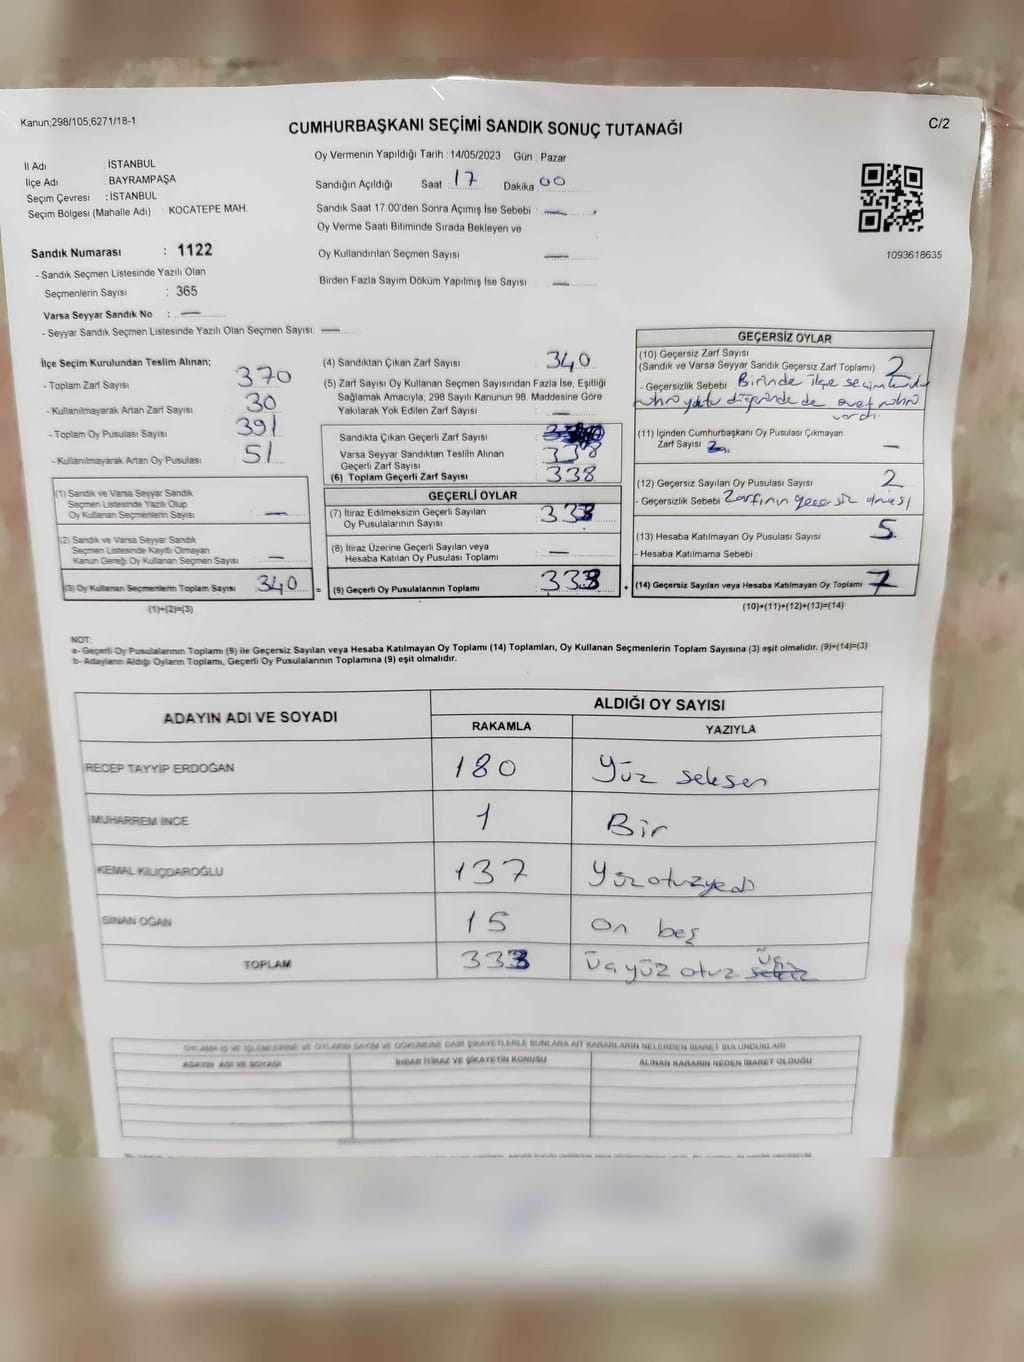 Kanun,298/105,6271/18-1
C/2
CUMHURBAŞKANI SEÇİMİ SANDIK SONUÇ TUTANAĞI
İl Adı : İSTANBUL
İlçe Adı : BAYRAMPAŞA
Seçim Çevresi : İSTANBUL
Seçim Bölgesi (Mahalle Adı) : KOCATEPE MAH.
Oy Vermenin Yapıldığı Tarih : 14/05/2023 Gün : Pazar
Sandığın Açıldığı Saat : 17 Dakika : 00
Sandık Saat 17:00'den Sonra Açılmış İse Sebebi : —
Oy Verme Saati Bitiminde Sırada Bekleyen ve
Oy Kullandırılan Seçmen Sayısı : —
Birden Fazla Sayım Döküm Yapılmış İse Sayısı : —
1093618635
Sandık Numarası : 1122
- Sandık Seçmen Listesinde Yazılı Olan
Seçmenlerin Sayısı : 365
Varsa Seyyar Sandık No : —
- Seyyar Sandık Seçmen Listesinde Yazılı Olan Seçmen Sayısı: —
İlçe Seçim Kurulundan Teslim Alınan;
- Toplam Zarf Sayısı : 370
- Kullanılmayarak Artan Zarf Sayısı : 30
- Toplam Oy Pusulası Sayısı : 391
- Kullanılmayarak Artan Oy Pusulası : 51
(1) Sandık ve Varsa Seyyar Sandık
Seçmen Listesinde Yazılı Olup
Oy Kullanan Seçmenlerin Sayısı : —
(2) Sandık ve Varsa Seyyar Sandık
Seçmen Listesinde Kayıtlı Olmayan
Kanun Gereği Oy Kullanan Seçmen Sayısı : —
(3) Oy Kullanan Seçmenlerin Toplam Sayısı : 340
(1)+(2)=(3)
(4) Sandıktan Çıkan Zarf Sayısı : 340
(5) Zarf Sayısı Oy Kullanan Seçmen Sayısından Fazla İse, Eşitliği
Sağlamak Amacıyla, 298 Sayılı Kanunun 98. Maddesine Göre
Yakılarak Yok Edilen Zarf Sayısı : —
Sandıkta Çıkan Geçerli Zarf Sayısı :
Varsa Seyyar Sandıktan Teslim Alınan
Geçerli Zarf Sayısı : 338
(6) Toplam Geçerli Zarf Sayısı : 338
GEÇERLİ OYLAR
(7) İtiraz Edilmeksizin Geçerli Sayılan
Oy Pusulalarının Sayısı : 333
(8) İtiraz Üzerine Geçerli Sayılan veya
Hesaba Katılan Oy Pusulası Toplamı : —
= (9) Geçerli Oy Pusulalarının Toplamı : 333
GEÇERSİZ OYLAR
(10) Geçersiz Zarf Sayısı
(Sandık ve Varsa Seyyar Sandık Geçersiz Zarf Toplamı) : 2
- Geçersizlik Sebebi : Birinde ilçe seçim
mührü yoktu diğerinde de evet mührü
vardı.
(11) İçinden Cumhurbaşkanı Oy Pusulası Çıkmayan
Zarf Sayısı : —
(12) Geçersiz Sayılan Oy Pusulası Sayısı : 2
- Geçersizlik Sebebi : Zarfının geçersiz olması
(13) Hesaba Katılmayan Oy Pusulası Sayısı : 5
- Hesaba Katılmama Sebebi :
+ (14) Geçersiz Sayılan veya Hesaba Katılmayan Oy Toplamı : 7
(10)+(11)+(12)+(13)=(14)
NOT:
a- Geçerli Oy Pusulalarının Toplamı (9) ile Geçersiz Sayılan veya Hesaba Katılmayan Oy Toplamı (14) Toplamları, Oy Kullanan Seçmenlerin Toplam Sayısına (3) eşit olmalıdır. (9)+(14)=(3)
b- Adayların Aldığı Oyların Toplamı, Geçerli Oy Pusulalarının Toplamına (9) eşit olmalıdır.
ADAYIN ADI VE SOYADI
ALDIĞI OY SAYISI
RAKAMLA YAZIYLA
RECEP TAYYİP ERDOĞAN 180 Yüz seksen
MUHARREM İNCE 1 Bir
KEMAL KILIÇDAROĞLU 137 Yüzotuzyedi
SİNAN OĞAN 15 on beş
TOPLAM 333 üçyüz otuz üç
OYLAMA İŞ VE İŞLEMLERİNE VE OYLARIN SAYIM VE DÖKÜMÜNE DAİR ŞİKAYETLERLE BUNLARA AİT KARARLARIN NELERDEN İBARET BULUNDUKLARI
ADAYIN ADI VE SOYADI İHBAR İTİRAZ VE ŞİKAYETİN KONUSU ALINAN KARARIN NEDEN İBARET OLDUĞU